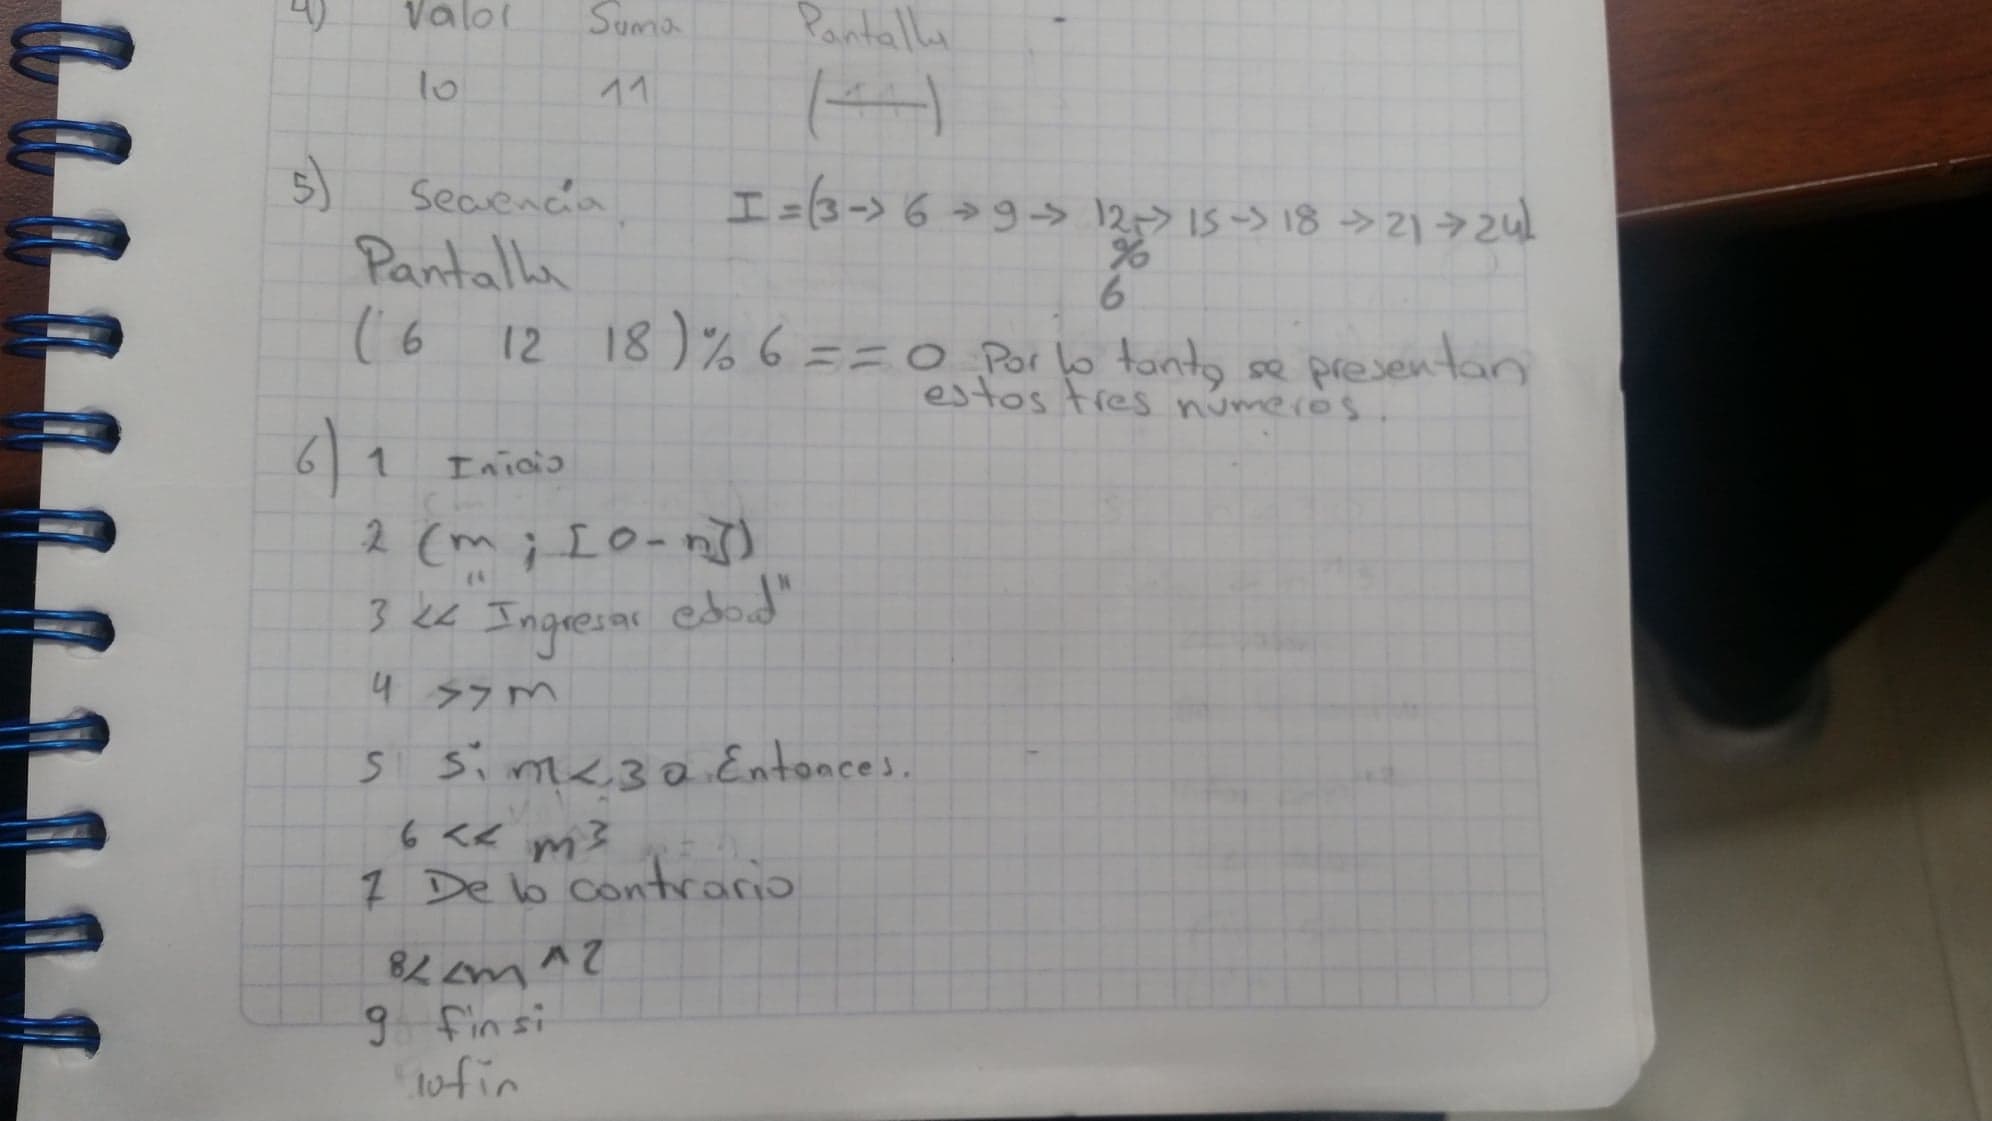 4) Valor Suma Pantalla
10 11
5) Secuencia I = (3 -> 6 -> 9 -> 12 -> 15 -> 18 -> 21 -> 24)
%
6
Pantalla
(6 12 18) % 6 == 0 Por lo tanto se presentan
estos tres numeros.
6) 1 Inicio
2 (m ; [0-n])
3 << "Ingresar edad"
4 >> m
5 Si m < 30 Entonces.
6 << m^3
7 De lo contrario
8 << m ^ 2
9 fin si
10 fin